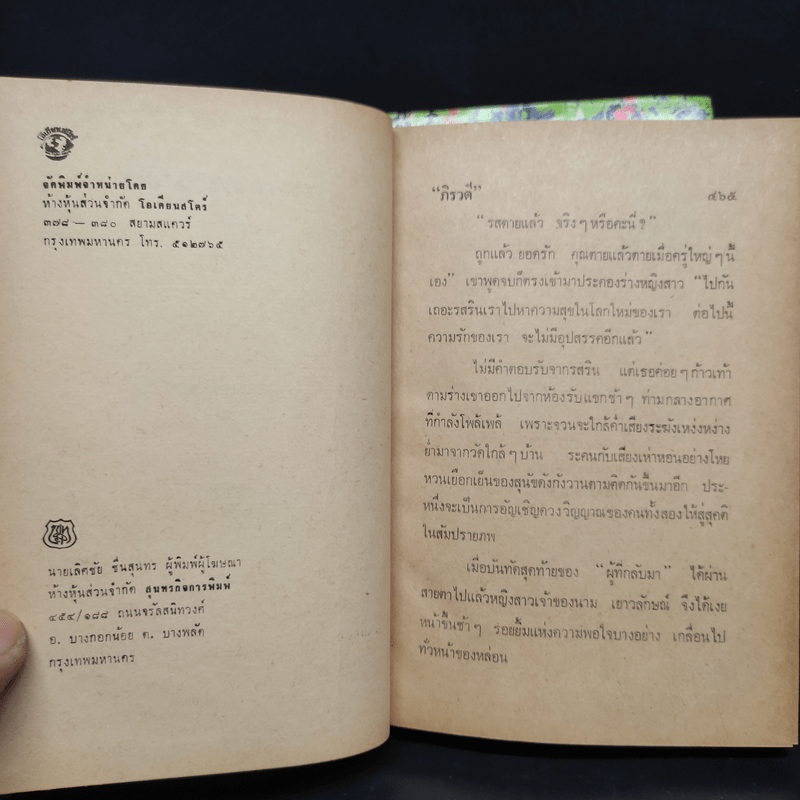 จัดพิมพ์จำหน่ายโดย
ห้างหุ้นส่วนจำกัด โอเดียนสโตร์
๓๗๘ — ๓๘๐ สยามสแควร์
กรุงเทพมหานคร โทร. ๕๑๒๗๖๕
นายเลิศชัย ชื่นสุนทร ผู้พิมพ์ผู้โฆษณา
ห้างหุ้นส่วนจำกัด สุนทรกิจการพิมพ์
๔๕๔/๑๘๘ ถนนจรัลสนิทวงศ์
อ. บางกอกน้อย ต. บางพลัด
กรุงเทพมหานคร
“ภิรวดี” ๔๖๕
“รสตายแล้ว จริงๆหรือคะนี่?”
ถูกแล้ว ยอดรัก คุณตายแล้วตายเมื่อครู่ใหญ่ๆนี้
เอง” เขาพูดจบก็ตรงเข้ามาประคองร่างหญิงสาว “ไปกัน
เถอะรสรินเราไปหาความสุขในโลกใหม่ของเรา ต่อไปนี้
ความรักของเรา จะไม่มีอุปสรรคอีกแล้ว”
ไม่มีคำตอบรับจากรสริน แต่เธอค่อยๆก้าวเท้า
ตามร่างเขาออกไปจากห้องรับแขกช้าๆ ท่ามกลางอากาศ
ที่กำลังโพล้เพล้ เพราะจวนจะใกล้ค่ำเสียงระฆังเหง่งหง่าง
ย่ำมาจากวัดใกล้ๆบ้าน ระคนกับเสียงเห่าหอนอย่างโหย
หวนเยือกเย็นของสุนัขดังกังวานตามติดกันขึ้นมาอีก ประ-
หนึ่งจะเป็นการอัญเชิญดวงวิญญาณของคนทั้งสองให้สู่สุคติ
ในสัมปรายภพ
เมื่อบันทัดสุดท้ายของ “ผู้ที่กลับมา” ได้ผ่าน
สายตาไปแล้วหญิงสาวเจ้าของนาม เยาวลักษณ์ จึงได้เงย
หน้าขึ้นช้าๆ รอยยิ้มแห่งความพอใจบางอย่าง เกลื่อนไป
ทั่วหน้าของหล่อน